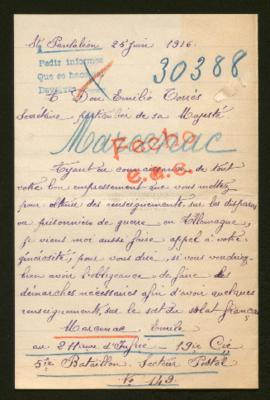 St Pantaléon 25 juin 1916.
Pedir informes
Que se hacen
30388
A Don Emilio Torrès
Secrétaire particulier de sa Majesté
Marcenac
Fecho
Ayant eu connaissance de tout
votre bon empressement que vous mettez
pour obtenir des renseignements sur les disparus
ou prisonniers de guerre en Allemagne,
je viens moi aussi faire appel à votre
générosité, pour vous dire, si vous voudriez
bien avoir l'obligeance de faire des
démarches nécessaires afin d'avoir quelques
renseignements sur le sort du soldat français
Marcenac Emile
au 211eme d'Infrie - 19e Cie
5ie Bataillon. Secteur Postal
No 149.